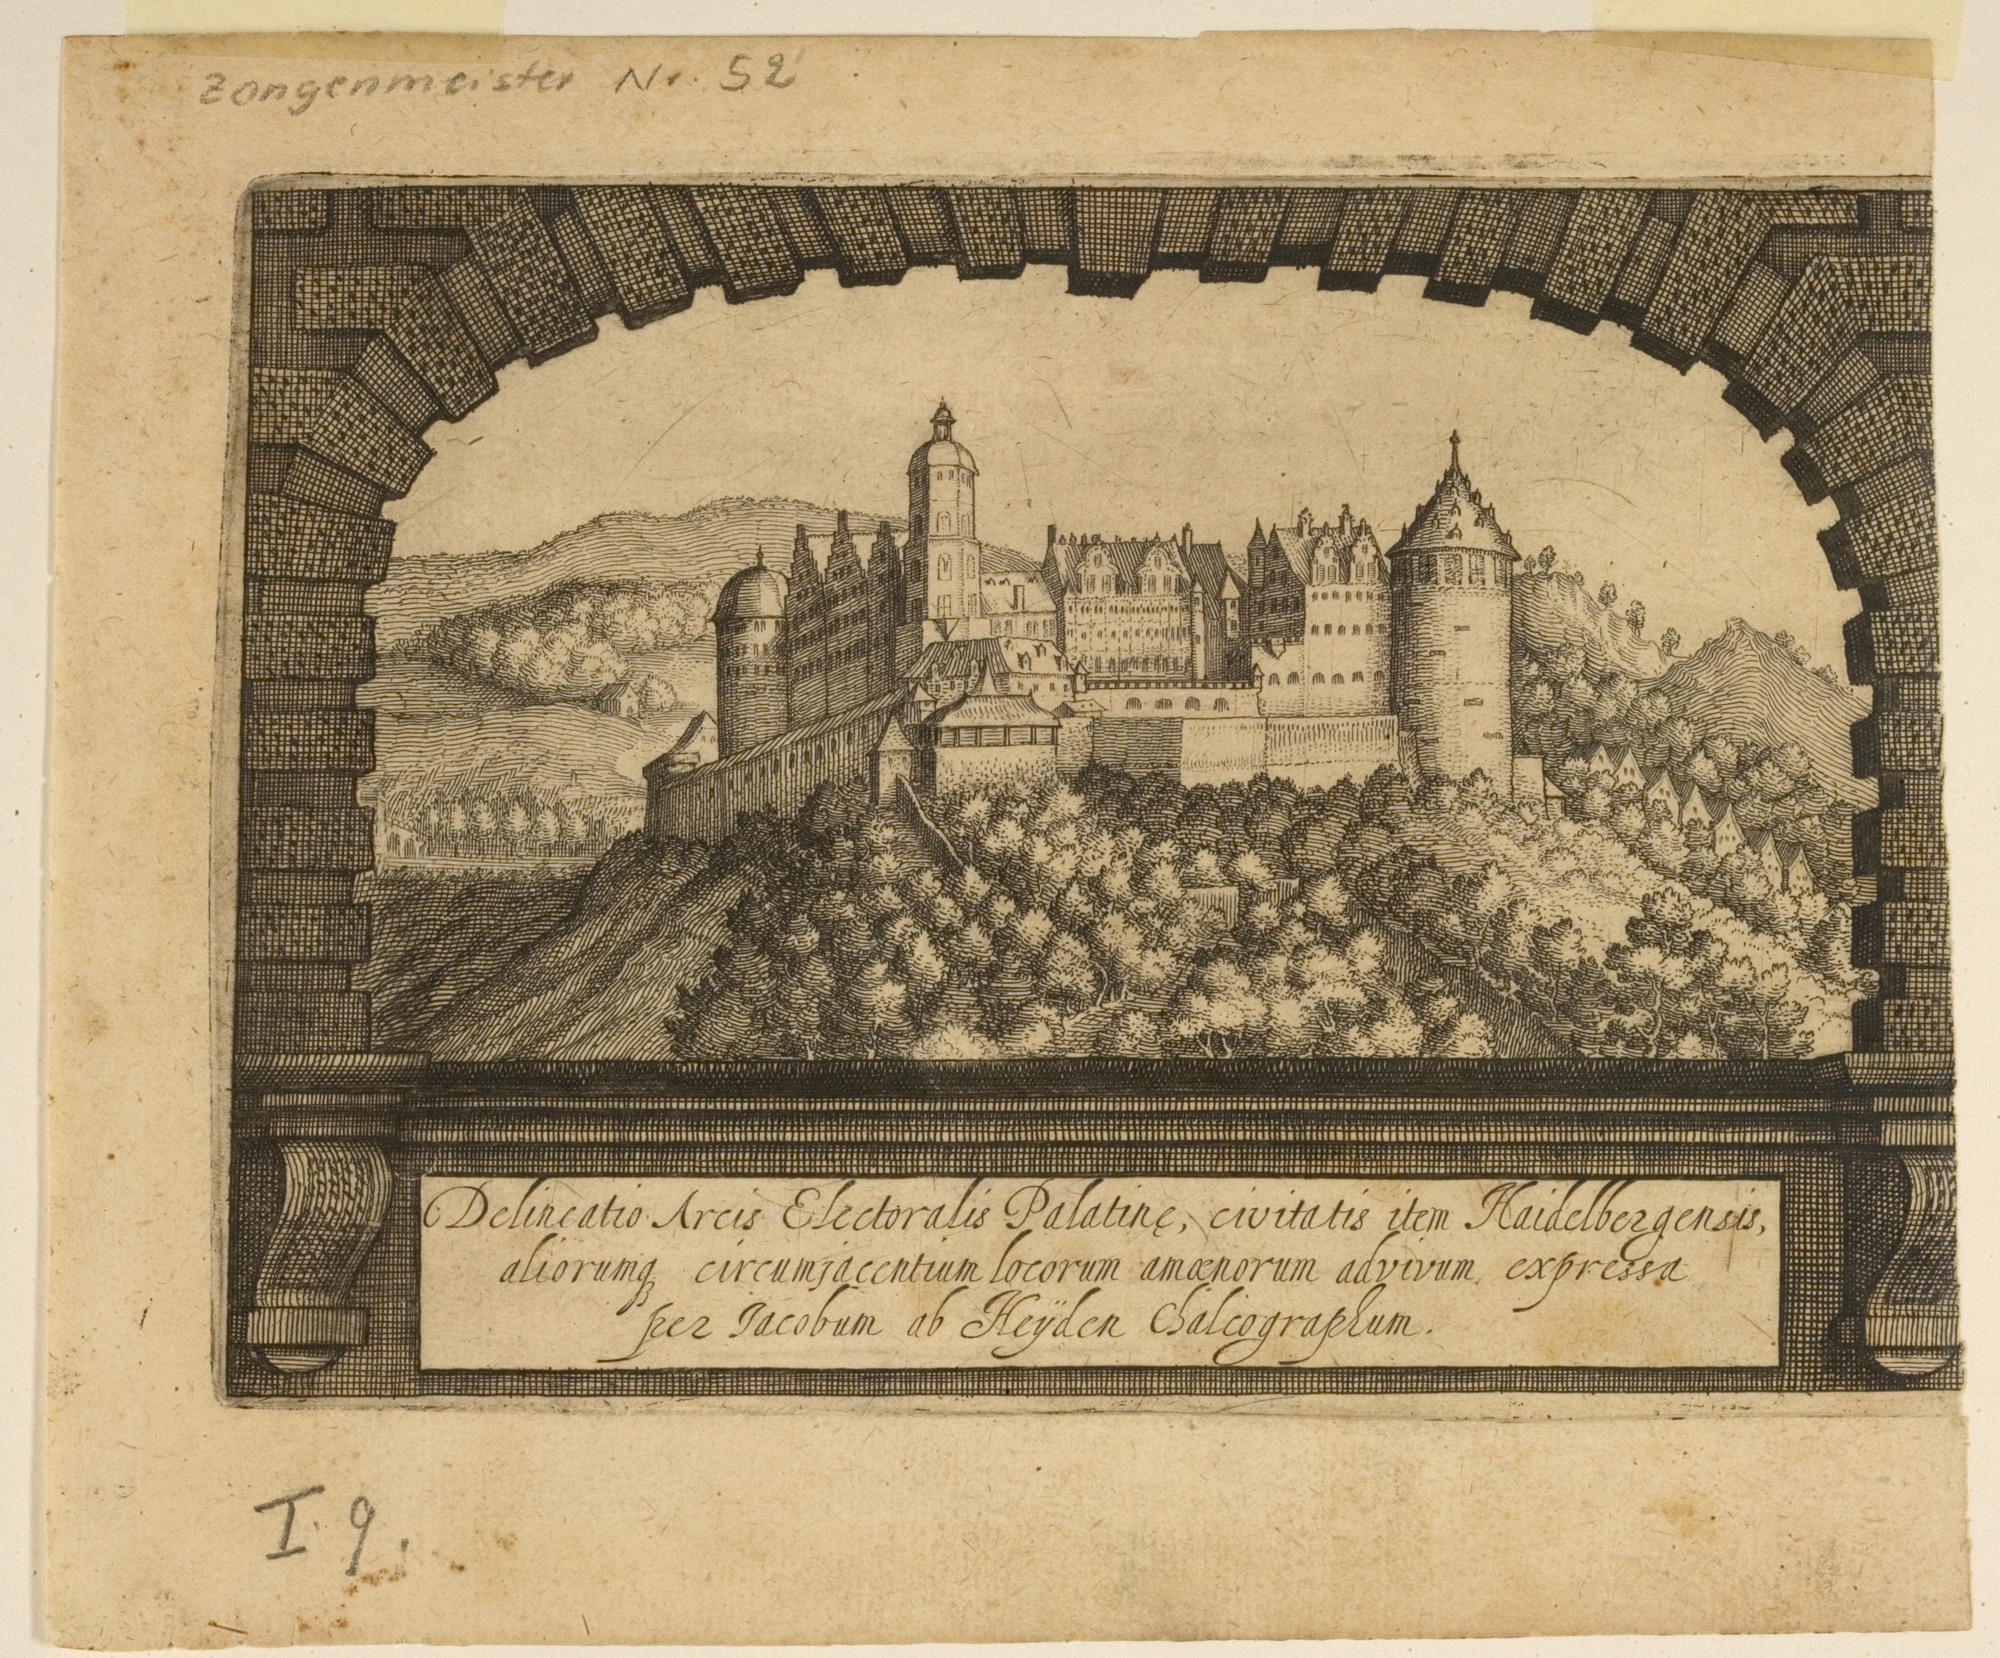 Zangenmeister Nr. 52
Delineatio Arcis Electoralis Palatinę, civitatis item Haidelbergensis,
aliorumq circumjacentium locorum amœnorum advivum expressa
per Jacobum ab Heÿden Chalcographum.
I. 9.